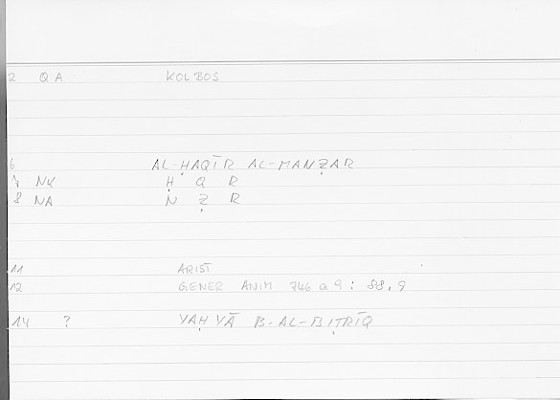 2 QA KOLBOS
6 AL-ḤAQĪR AL-MANẒAR
7 NK Ḥ Q R
8 NA N Ẓ R
11 ARIST
12 GENER ANIM 746 a 9 : 88,9
14 ? YAḤYĀ B-AL-BIṬRĪQ